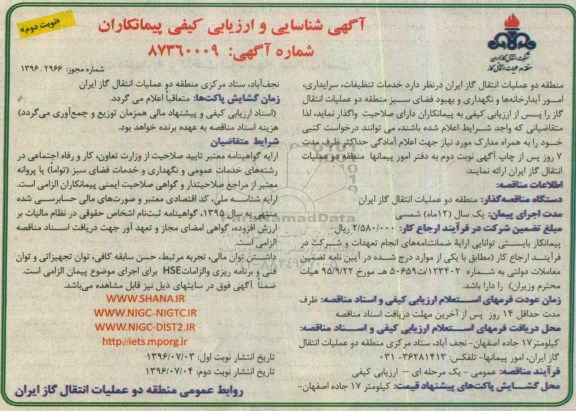 «نوبت دوم»
آگهی شناسایی و ارزیابی کیفی پیمانکاران
شماره آگهی: ۸۷۳۶۰۰۰۹
شماره مجوز: ۱۳۹۶.۲۹۶۶
شرکت ملی گاز ایران
منطقه دو عملیات انتقال گاز ایران درنظر دارد خدمات تنظیفات، سرایداری،
امور آبدارخانه‌ها و نگهداری و بهبود فضای سبز منطقه دو عملیات انتقال
گاز را پس از ارزیابی کیفی به پیمانکاران دارای صلاحیت واگذار نماید، لذا
متقاضیانی که واجد شرایط اعلام شده باشند، می توانند درخواست کتبی
خود را به همراه مدارک مورد نیاز جهت اعلام آمادگی حداکثر ظرف مدت
۷ روز پس از چاپ آگهی نوبت دوم به دفتر امور پیمانها منطقه دو عملیات
انتقال گاز ایران ارائه نمایند.
اطلاعات مناقصه:
دستگاه مناقصه‌گذار: منطقه دو عملیات انتقال گاز ایران
مدت اجرای پیمان: یک سال (۱۲ماه) شمسی
مبلغ تضمین شرکت در فرآیند ارجاع کار: ۲/۵۸۰/۰۰۰ ریال-
پیمانکار بایستی توانایی ارایهٔ ضمانتنامه‌های انجام تعهدات و شرکت در
فرآیند ارجاع کار (مطابق با یکی از موارد درج شده در آیین نامه تضمین
معاملات دولتی به شماره ۱۲۳۴۰۲/ت۵۰۶۵۹ هـ مورخ ۹۵/۹/۲۲ هیات
محترم وزیران) را دارا باشد.
زمان عودت فرمهای استعلام ارزیابی کیفی و اسناد مناقصه: ظرف
مدت حداقل ۱۴ روز پس از آخرین مهلت دریافت اسناد مناقصه
محل دریافت فرمهای استعلام ارزیابی کیفی و اسناد مناقصه:
کیلومتر۱۷ جاده اصفهان- نجف آباد، ستاد مرکزی منطقه دو عملیات انتقال
گاز ایران، امور پیمانها- تلفکس: ۳۶۲۸۱۴۱۳-۰۳۱
فرآیند مناقصه: عمومی - یک مرحله ای – ارزیابی کیفی
محل گشایش پاکت‌های پیشنهاد قیمت: کیلومتر ۱۷ جاده اصفهان-
نجف‌آباد، ستاد مرکزی منطقه دو عملیات انتقال گاز ایران
زمان گشایش پاکت‌ها: متعاقباً اعلام می گردد.
(اسناد ارزیابی کیفی و پیشنهاد مالی همزمان توزیع و جمع‌آوری می‌گردد)
هزینه اسناد مناقصه به عهده برنده خواهد بود.
شرایط متقاضیان
ارایه گواهینامه معتبر تایید صلاحیت از وزارت تعاون، کار و رفاه اجتماعی در
رشته‌های خدمات عمومی و نگهداری و خدمات فضای سبز (تواماً) یا پروانه
معتبر از مراجع صلاحیتدار و گواهی صلاحیت ایمنی پیمانکاران الزامی است.
ارایه شناسه ملی، کد اقتصادی معتبر و صورت‌های مالی حسابرسی شده
منتهی به سال ۱۳۹۵، گواهینامه ثبت‌نام اشخاص حقوقی در نظام مالیات بر
ارزش افزوده، گواهی امضای مجاز و تعهد آور جهت دریافت اسناد مناقصه
الزامی است.
داشتن توان مالی، تجربه مرتبط، حسن سابقه کافی، توان تجهیزاتی و توان
فنی و برنامه ریزی والزامات HSE برای اجرای موضوع پیمان الزامی است.
ضمناً آگهی فوق در سایتهای ذیل نیز قابل مشاهده می‌باشد.
WWW.SHANA.IR
WWW.NIGC-NIGTC.IR
WWW.NIGC-DIST2.IR
http://iets.mporg.ir
تاریخ انتشار نوبت اول: ۱۳۹۶/۰۷/۰۳
تاریخ انتشار نوبت دوم: ۱۳۹۶/۰۷/۰۴
روابط عمومی منطقه دو عملیات انتقال گاز ایران